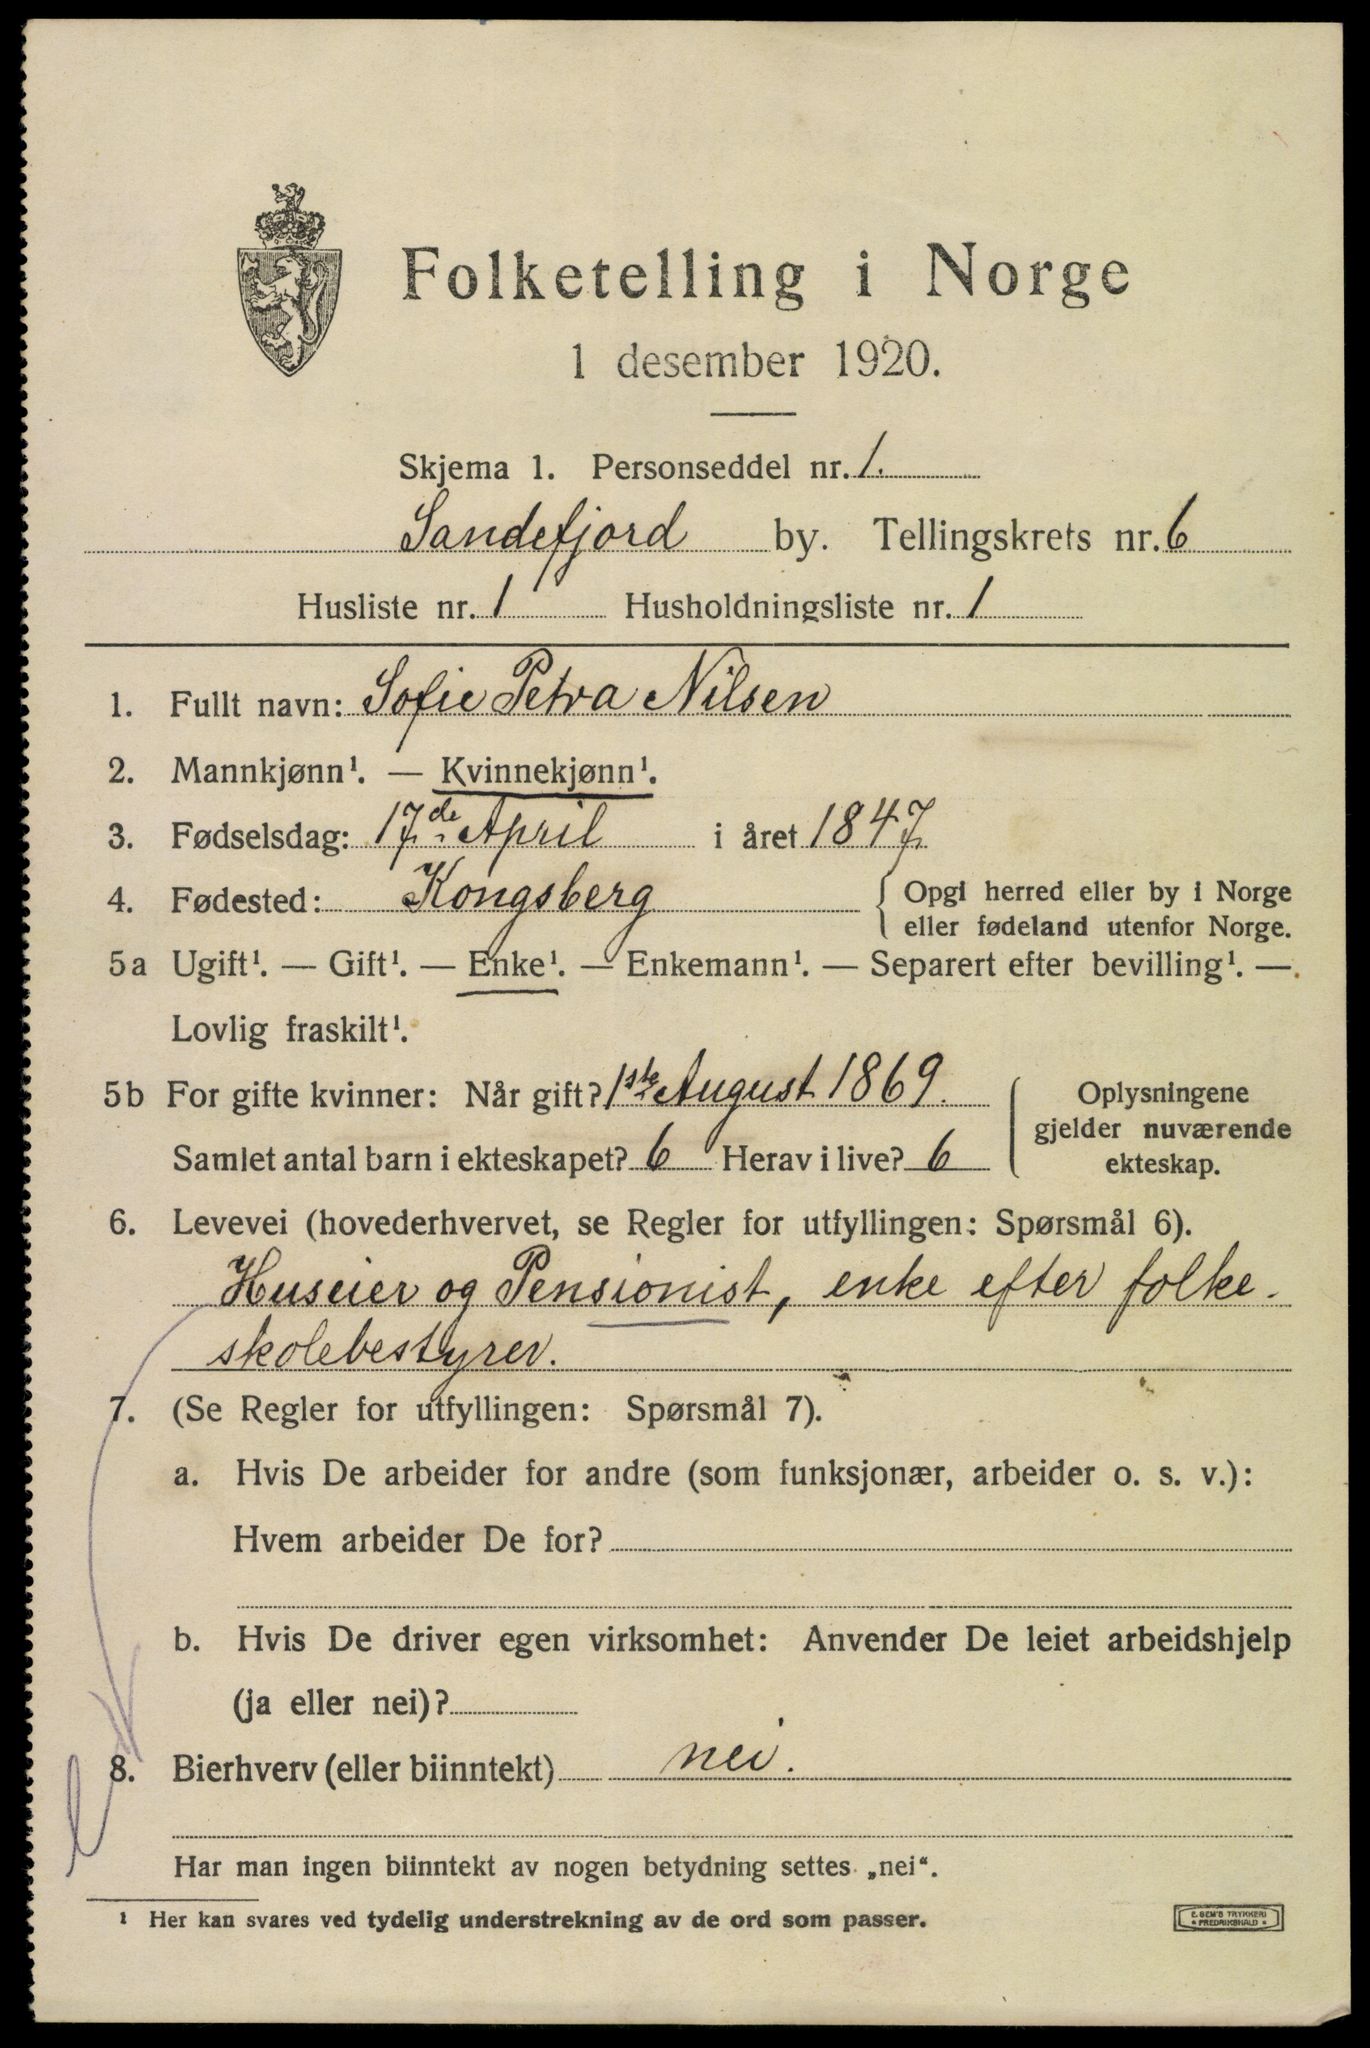 Folketelling i Norge
1 desember 1920.
Skjema 1. Personseddel nr. 1.
Sandefjord by. Tellingskrets nr. 6
Husliste nr. 1 Husholdningsliste nr. 1
1. Fullt navn: Sofie Petra Nilsen
2. Mannkjønn¹. — Kvinnekjønn¹.
3. Fødselsdag: 17de April i året 1847
4. Fødested: Kongsberg { Opgi herred eller by i Norge
eller fødeland utenfor Norge.
5a Ugift¹. — Gift¹. — Enke¹. — Enkemann¹. — Separert efter bevilling¹. —
Lovlig fraskilt¹.
5b For gifte kvinner: Når gift? 1ste August 1869.
Samlet antal barn i ekteskapet? 6 Herav i live? 6
Oplysningene
gjelder nuværende
ekteskap.
6. Levevei (hovederhvervet, se Regler for utfyllingen: Spørsmål 6).
Huseier og Pensionist, enke efter folke-
skolebestyrer.
7. (Se Regler for utfyllingen: Spørsmål 7).
a. Hvis De arbeider for andre (som funksjonær, arbeider o. s. v.):
Hvem arbeider De for?
b. Hvis De driver egen virksomhet: Anvender De leiet arbeidshjelp
(ja eller nei)?
8. Bierhverv (eller biinntekt) nei.
Har man ingen biinntekt av nogen betydning settes „nei“.
¹ Her kan svares ved tydelig understrekning av de ord som passer.
E. SEM'S TRYKKERI
* FREDRIKSHALD *